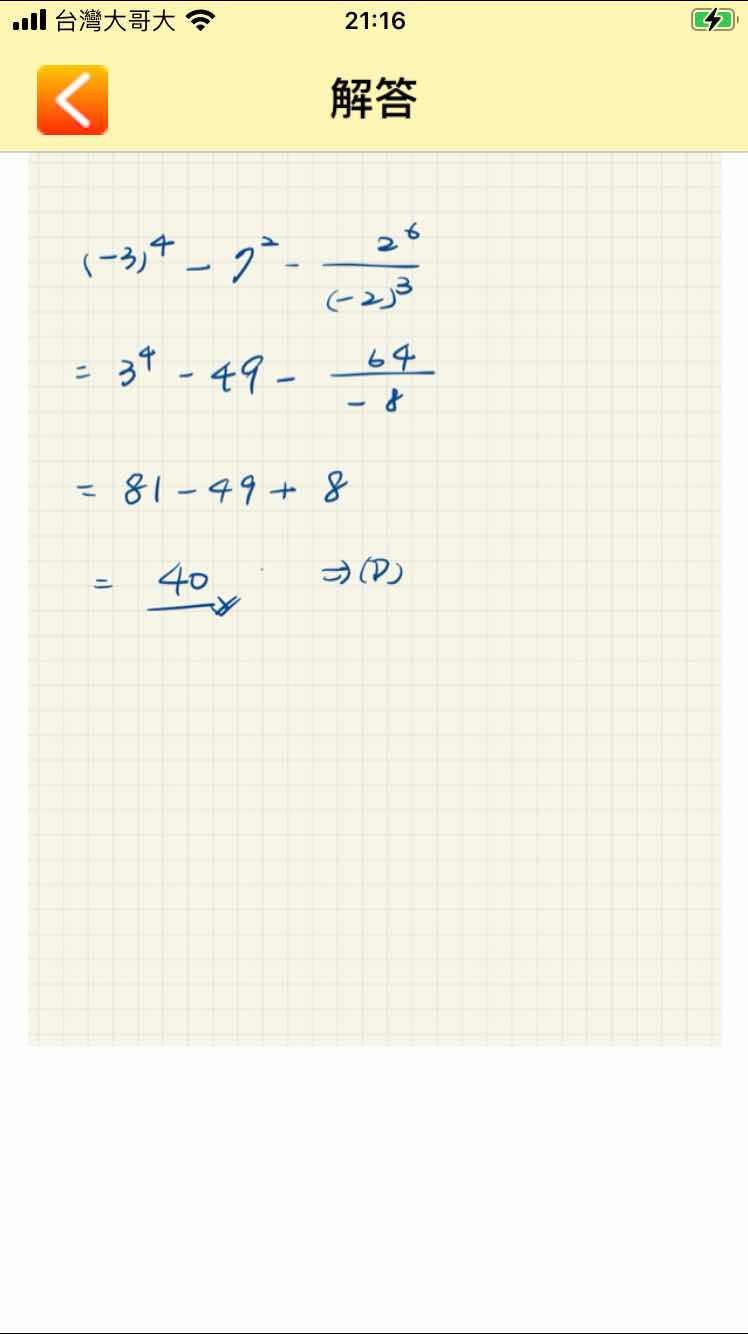 台灣大哥大 21:16
解答
(-3)^4 - 7^2 - 2^6/(-2)^3
= 3^4 - 49 - 64/-8
= 81 - 49 + 8
= 40 ⇒ (D)